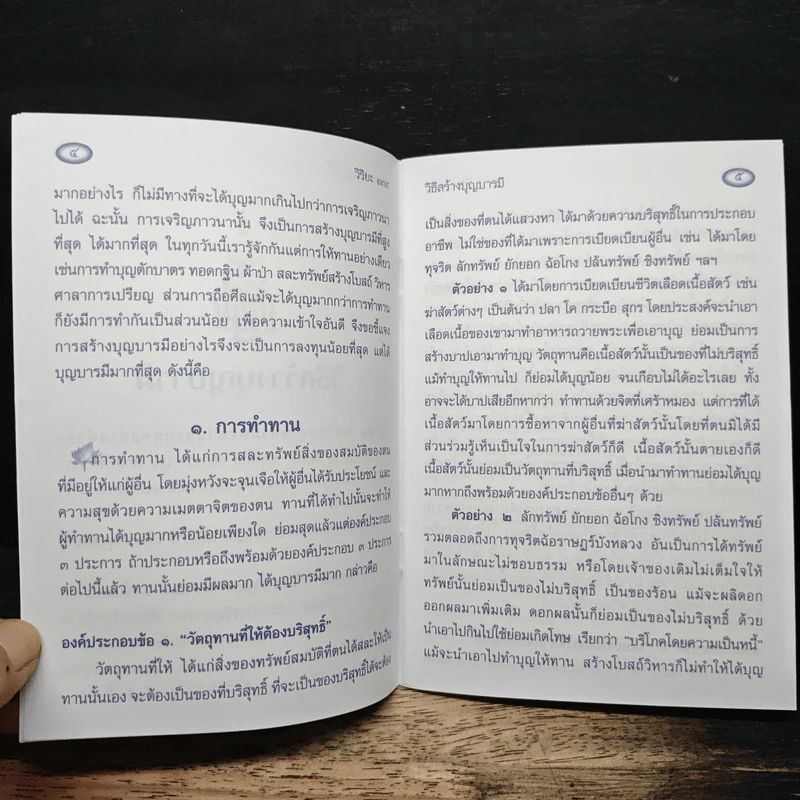 ๔
วิริยะ ๑๓๙
มากอย่างไร ก็ไม่มีทางที่จะได้บุญมากเกินไปกว่าการเจริญภาวนา
ไปได้ ฉะนั้น การเจริญภาวนานั้น จึงเป็นการสร้างบุญบารมีที่สูง
ที่สุด ได้มากที่สุด ในทุกวันนี้เรารู้จักกันแต่การให้ทานอย่างเดียว
เช่นการทำบุญตักบาตร ทอดกฐิน ผ้าป่า สละทรัพย์สร้างโบสถ์ วิหาร
ศาลาการเปรียญ ส่วนการถือศีลแม้จะได้บุญมากกว่าการทำทาน
ก็ยังมีการทำกันเป็นส่วนน้อย เพื่อความเข้าใจอันดี จึงขอชี้แจง
การสร้างบุญบารมีอย่างไรจึงจะเป็นการลงทุนน้อยที่สุด แต่ได้
บุญบารมีมากที่สุด ดังนี้คือ
๑. การทำทาน
การทำทาน ได้แก่การสละทรัพย์สิ่งของสมบัติของตน
ที่มีอยู่ให้แก่ผู้อื่น โดยมุ่งหวังจะจุนเจือให้ผู้อื่นได้รับประโยชน์ และ
ความสุขด้วยความเมตตาจิตของตน ทานที่ได้ทำไปนั้นจะทำให้
ผู้ทำทานได้บุญมากหรือน้อยเพียงใด ย่อมสุดแล้วแต่องค์ประกอบ
๓ ประการ ถ้าประกอบหรือถึงพร้อมด้วยองค์ประกอบ ๓ ประการ
ต่อไปนี้แล้ว ทานนั้นย่อมมีผลมาก ได้บุญบารมีมาก กล่าวคือ
องค์ประกอบข้อ ๑. “วัตถุทานที่ให้ต้องบริสุทธิ์”
วัตถุทานที่ให้ ได้แก่สิ่งของทรัพย์สมบัติที่ตนได้สละให้เป็น
ทานนั้นเอง จะต้องเป็นของที่บริสุทธิ์ ที่จะเป็นของบริสุทธิ์ได้จะต้อง
วิธีสร้างบุญบารมี
๕
เป็นสิ่งของที่ตนได้แสวงหา ได้มาด้วยความบริสุทธิ์ในการประกอบ
อาชีพ ไม่ใช่ของที่ได้มาเพราะการเบียดเบียนผู้อื่น เช่น ได้มาโดย
ทุจริต ลักทรัพย์ ยักยอก ฉ้อโกง ปล้นทรัพย์ ชิงทรัพย์ ฯลฯ
ตัวอย่าง ๑ ได้มาโดยการเบียดเบียนชีวิตเลือดเนื้อสัตว์ เช่น
ฆ่าสัตว์ต่างๆ เป็นต้นว่า ปลา โค กระบือ สุกร โดยประสงค์จะนำเอา
เลือดเนื้อของเขามาทำอาหารถวายพระเพื่อเอาบุญ ย่อมเป็นการ
สร้างบาปเอามาทำบุญ วัตถุทานคือเนื้อสัตว์นั้นเป็นของที่ไม่บริสุทธิ์
แม้ทำบุญให้ทานไป ก็ย่อมได้บุญน้อย จนเกือบไม่ได้อะไรเลย ทั้ง
อาจจะได้บาปเสียอีกหากว่า ทำทานด้วยจิตที่เศร้าหมอง แต่การที่ได้
เนื้อสัตว์มาโดยการซื้อหาจากผู้อื่นที่ฆ่าสัตว์นั้นโดยที่ตนมิได้มี
ส่วนร่วมรู้เห็นเป็นใจในการฆ่าสัตว์ก็ดี เนื้อสัตว์นั้นตายเองก็ดี
เนื้อสัตว์นั้นย่อมเป็นวัตถุทานที่บริสุทธิ์ เมื่อนำมาทำทานย่อมได้บุญ
มากหากถึงพร้อมด้วยองค์ประกอบข้ออื่นๆ ด้วย
ตัวอย่าง ๒ ลักทรัพย์ ยักยอก ฉ้อโกง ชิงทรัพย์ ปล้นทรัพย์
รวมตลอดถึงการทุจริตฉ้อราษฎร์บังหลวง อันเป็นการได้ทรัพย์
มาในลักษณะไม่ชอบธรรม หรือโดยเจ้าของเดิมไม่เต็มใจให้
ทรัพย์นั้นย่อมเป็นของไม่บริสุทธิ์ เป็นของร้อน แม้จะผลิดอก
ออกผลมาเพิ่มเติม ดอกผลนั้นก็ย่อมเป็นของไม่บริสุทธิ์ ด้วย
นำเอาไปกินไปใช้ย่อมเกิดโทษ เรียกว่า “บริโภคโดยความเป็นหนี้”
แม้จะนำเอาไปทำบุญให้ทาน สร้างโบสถ์วิหารก็ไม่ทำให้ได้บุญ